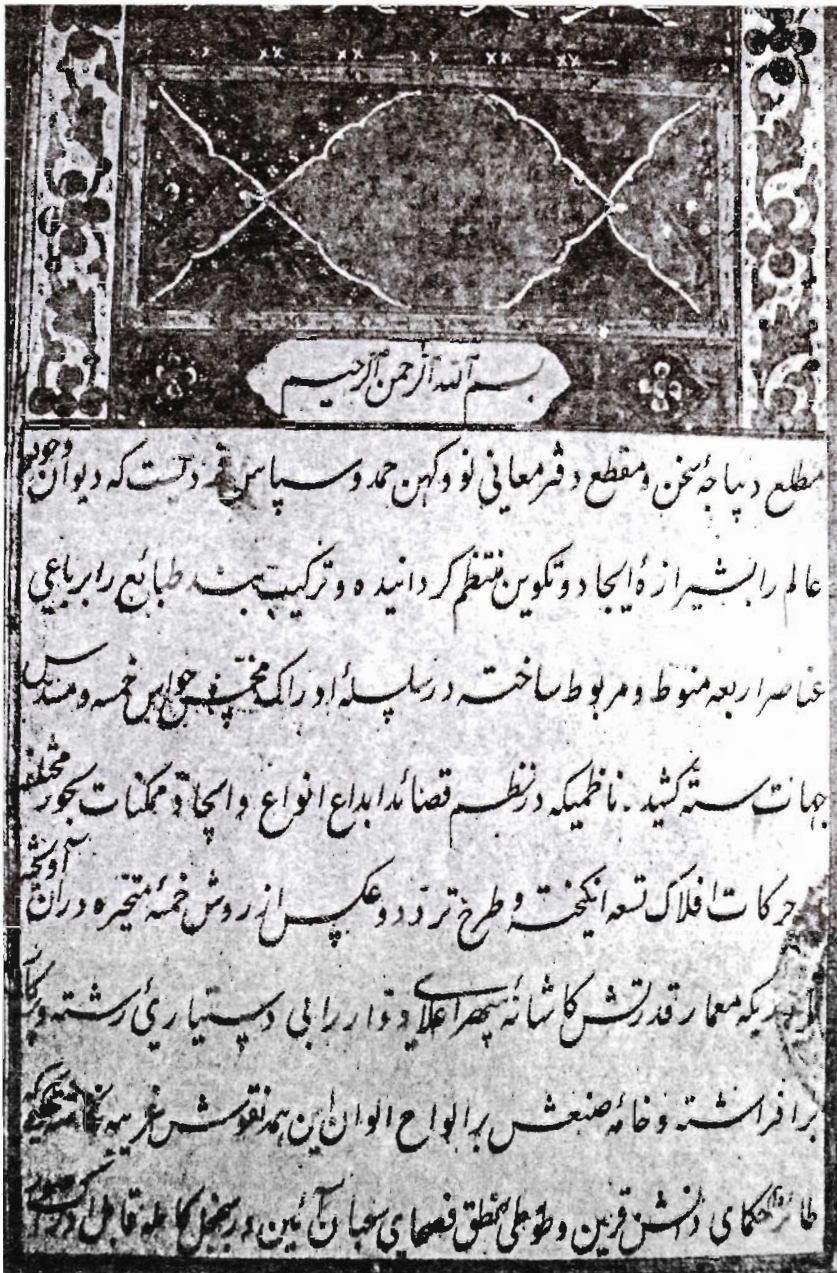 بسم الله الرحمن الرحيم
مطلع دیباجۀ سخن و مقطع دفتر معانی نو و کهن حمد و سپاس که دیوان وجود
عالم را بشیرازۀ ایجاد و تکوین منتظم کردانیده و ترکیب بند طبائع را برباعی
عناصر اربعه منوط و مربوط ساخته در سلسلۀ ادراک مخمس حواس خمسه و مسدس
جهات سته کشید . ناظمیکه در نظم قصائد ابداع انواع و ایجاد ممکنات بحور مختلفه
حرکات افلاک تسعه انکیخته و طرح تردد و عکس از روش خمسۀ متحیره دران آویخته
معمار قدرتش کاشانۀ سپهر اعلای دوار را بی دستیاری رشته و
برافراشته و خامۀ صنعش بر الواح الوان این همه نقوش غریبه
حکمای دانش قرین و طوطی نطق فصحای سحبان آئین در